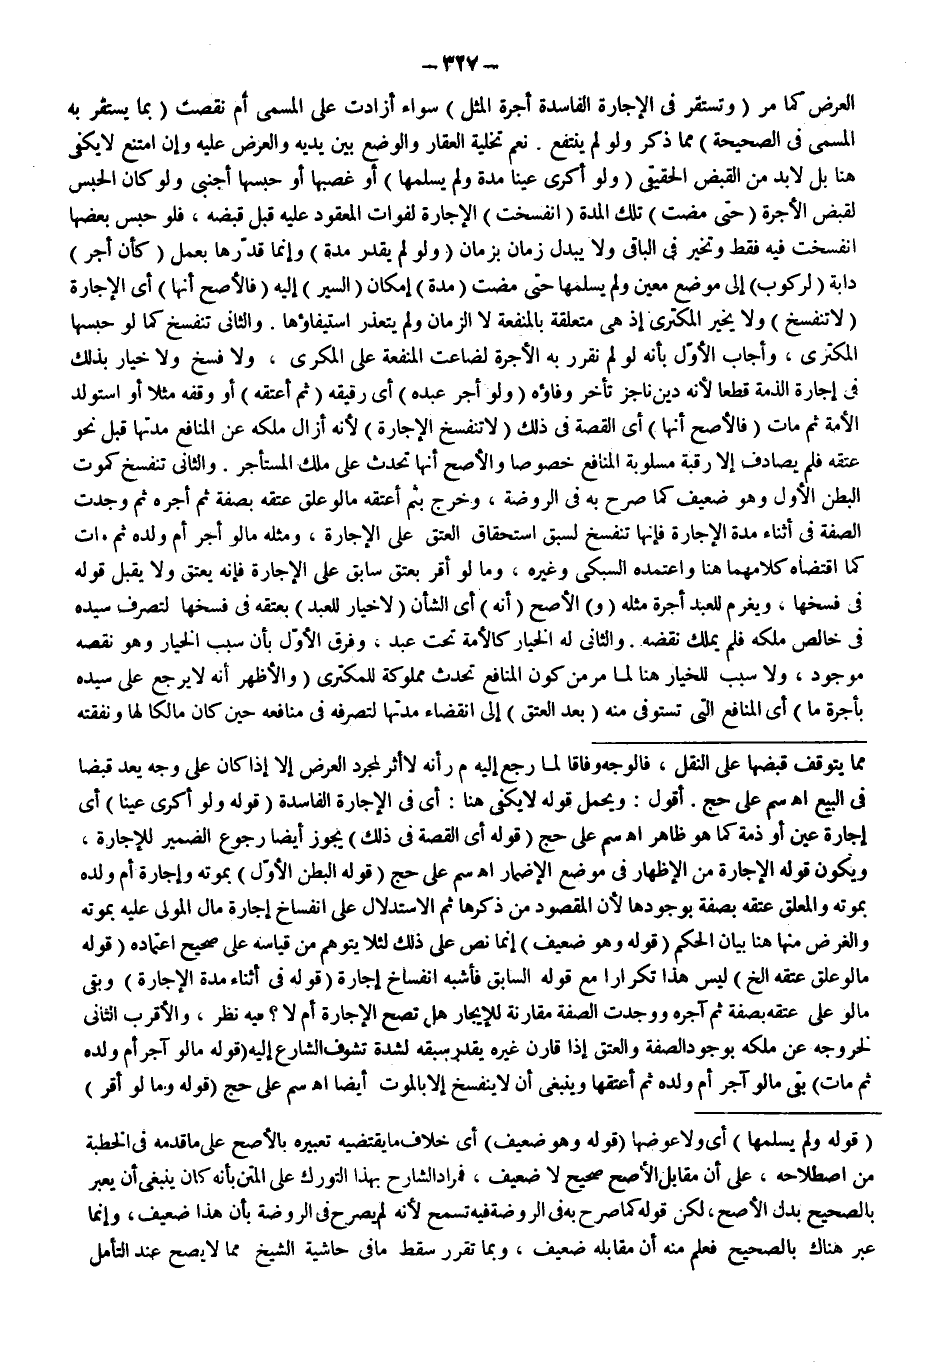 – ٣٢٧ –
العرض كما مر ( وتستقر فى الإجارة الفاسدة أجرة المثل ) سواء أزادت على المسمى أم نقصت ( بما يستقر به
المسمى فى الصحيحة ) مما ذكر ولو لم ينتفع . نعم تخلية العقار والوضع بين يديه والعرض عليه وإن امتنع لايكفى
هنا بل لابد من القبض الحقيقى ( ولو أكرى عينا مدة ولم يسلمها ) أو غصبها أو حبسها أجنبى ولو كان الحبس
لقبض الأجرة ( حتى مضت ) تلك المدة ( انفسخت ) الإجارة لفوات المعقود عليه قبل قبضه ، فلو حبس بعضها
انفسخت فيه فقط وتخير فى الباقى ولا يبدل زمان بزمان ( ولو لم يقدر مدة ) وإنما قدّرها بعمل ( كأن أجر )
دابة ( لركوب) إلى موضع معين ولم يسلمها حتى مضت ( مدة ) إمكان ( السير ) إليه ( فالأصح أنها ) أى الإجارة
( لاتنفسخ ) ولا يخير المكترى إذ هى متعلقة بالمنفعة لا الزمان ولم يتعذر استيفاؤها . والثانى تنفسخ كما لو حبسها
المكترى ، وأجاب الأوّل بأنه لو لم نقرر به الأجرة لضاعت المنفعة على المكرى ، ولا فسخ ولا خيار بذلك
فى إجارة الذمة قطعا لأنه دين ناجز تأخر وفاؤه ( ولو أجر عبده ) أى رقيقه ( ثم أعتقه ) أو وقفه مثلا أو استولد
الأمة ثم مات ( فالأصح أنها ) أى القصة فى ذلك ( لاتنفسخ الإجارة ) لأنه أزال ملكه عن المنافع مدتها قبل نحو
عتقه فلم يصادف إلا رقبة مسلوبة المنافع خصوصا والأصح أنها تحدث على ملك المستأجر . والثانى تنفسخ كموت
البطن الأول وهو ضعيف كما صرح به فى الروضة ، وخرج بثم أعتقه مالو علق عتقه بصفة ثم أجره ثم وجدت
الصفة فى أثناء مدة الإجارة فإنها تنفسخ لسبق استحقاق العتق على الإجارة ، ومثله مالو أجر أم ولده ثم مات
كما اقتضاه كلامهما هنا واعتمده السبكى وغيره ، وما لو أقر بعتق سابق على الإجارة فإنه يعتق ولا يقبل قوله
فى فسخها ، ويغرم للعبد أجرة مثله ( و) الأصح ( أنه ) أى الشأن ( لاخيار للعبد ) بعتقه فى فسخها لتصرف سيده
فى خالص ملكه فلم يملك نقضه . والثانى له الخيار كالأمة تحت عبد ، وفرق الأوّل بأن سبب الخيار وهو نقصه
موجود ، ولا سبب للخيار هنا لما مر من كون المنافع تحدث مملوكة للمكترى ( والأظهر أنه لايرجع على سيده
بأجرة ما ) أى المنافع التى تستوفى منه ( بعد العتق ) إلى انقضاء مدتها لتصرفه فى منافعه حين كان مالكا لها ونفقته
مما يتوقف قبضها على النقل ، فالوجه وفاقا لما رجع إليه م ر أنه لاأثر لمجرد العرض إلا إذا كان على وجه يعد قبضا
فى البيع اه سم على حج . أقول : ويحمل قوله لايكفى هنا : أى فى الإجارة الفاسدة ( قوله ولو أكرى عينا ) أى
إجارة عين أو ذمة كما هو ظاهر اه سم على حج ( قوله أى القصة فى ذلك ) يجوز أيضا رجوع الضمير للإجارة ،
ويكون قوله الإجارة من الإظهار فى موضع الإضمار اه سم على حج ( قوله البطن الأوّل ) بموته وإجارة أم ولده
بموته والمعلق عتقه بصفة بوجودها لأن المقصود من ذكرها ثم الاستدلال على انفساخ إجارة مال المولى عليه بموته
والغرض منها هنا بيان الحكم ( قوله وهو ضعيف ) إنما نص على ذلك لئلا يتوهم من قياسه على صحيح اعتماده ( قوله
مالو علق عتقه الخ ) ليس هذا تكرارا مع قوله السابق فأشبه انفساخ إجارة ( قوله فى أثناء مدة الإجارة ) وبقى
مالو على عتقه بصفة ثم آجره ووجدت الصفة مقارنة للإيجار هل تصح الإجارة أم لا ؟ فيه نظر ، والأقرب الثانى
لخروجه عن ملكه بوجود الصفة والعتق إذا قارن غيره يقدر سبقه لشدة تشوف الشارع إليه (قوله مالو آجر أم ولده
ثم مات) بقى مالو آجر أم ولده ثم أعتقها وينبغى أن لاينفسخ إلا بالموت أيضا اه سم على حج (قوله وما لو أقر )
( قوله ولم يسلمها ) أى ولا عوضها (قوله وهو ضعيف) أى خلاف مايقتضيه تعبيره بالأصح على ماقدمه فى الخطبة
من اصطلاحه ، على أن مقابل الأصح صحيح لا ضعيف ، فمراد الشارح بهذا التورك على المتن بأنه كان ينبغى أن يعبر
بالصحيح بدل الأصح ، لكن قوله كما صرح به فى الروضة فيه تسمح لأنه لم يصرح فى الروضة بأن هذا ضعيف ، وإنما
عبر هناك بالصحيح فعلم منه أن مقابله ضعيف ، وبما تقرر سقط مافى حاشية الشيخ مما لايصح عند التأمل